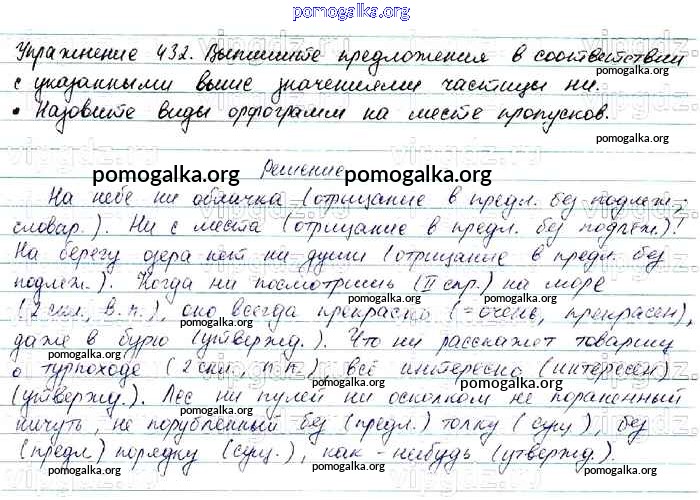 pomogalka.org
Упражнение 432. Выпишите предложения в соответствии
pomogalka.org
с указанными выше значениями частицы ни.
• Назовите виды орфограмм на месте пропусков.
pomogalka.org
Решение
pomogalka.org pomogalka.org
На небе ни облачка (отрицание в предл. без подлеж.,
словар.). Ни с места (отрицание в предл. без подлеж.)!
pomogalka.org
На берегу озера нет ни души (отрицание в предл. без
подлеж.). Когда ни посмотришь (II спр.) на море
pomogalka.org pomogalka.org
(2 скл., В.п.), оно всегда прекрасно (=очень, прекрасен),
pomogalka.org
даже в бурю (утвержд.). Что ни расскажет товарищ
pomogalka.org
о турпоходе (2 скл., П.п.) всё интересно (интересен)
pomogalka.org
(утвержд.). Лес ни пулей ни осколком не пораненный
pomogalka.org
ничуть, не порубленный без (предл.) толку (сущ.), без
(предл.) порядку (сущ.), как-нибудь (утвержд.).
pomogalka.org pomogalka.org